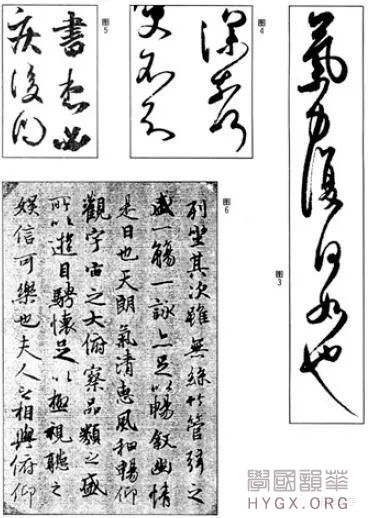 图3
氣力復何如也
图4
图5
書
图6
列坐其次雖無絲竹管弦之
盛一觴一詠亦足以暢敘幽情
是日也天朗氣清惠風和暢仰
觀宇宙之大俯察品類之盛
所以遊目騁懷足以極視聽之
娛信可樂也夫人之相與俯仰
華韻國學
HYGX.ORG